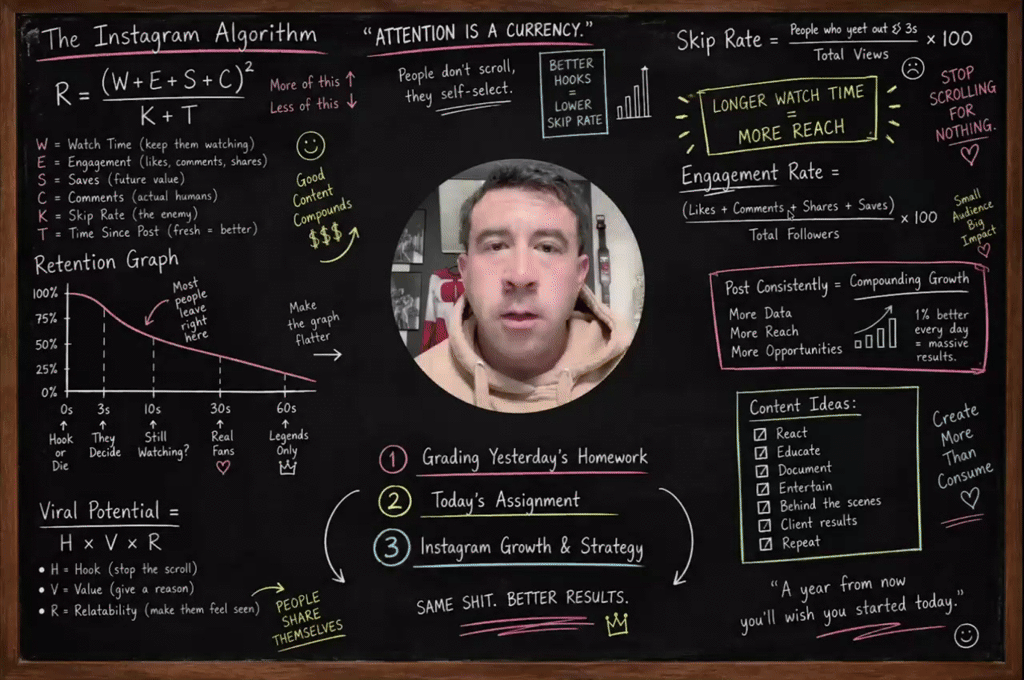 The Instagram Algorithm
R = (W + E + S + C)²
K + T
More of this ↑
Less of this ↓
W = Watch Time (keep them watching)
E = Engagement (likes, comments, shares)
S = Saves (future value)
C = Comments (actual humans)
K = Skip Rate (the enemy)
T = Time Since Post (fresh = better)
Good
Content
Compounds
$$$
Retention Graph
100%
75%
50%
25%
0%
Most
people
leave
right
here
Make
the graph
flatter
0s
3s
10s
30s
60s
Hook
or
Die
They
Decide
Still
Watching?
Real
Fans
Legends
Only
Viral Potential =
H x V x R
• H = Hook (stop the scroll)
• V = Value (give a reason)
• R = Relatability (make them feel seen)
PEOPLE
SHARE
THEMSELVES
"ATTENTION IS A CURRENCY."
People don't scroll,
they self-select.
BETTER
HOOKS
=
LOWER
SKIP RATE
1 Grading Yesterday's Homework
2 Today's Assignment
3 Instagram Growth & Strategy
SAME SHIT. BETTER RESULTS.
Skip Rate = People who yeet out 3s
Total Views
x 100
LONGER WATCH TIME
=
MORE REACH
STOP
SCROLLING
FOR
NOTHING.
Engagement Rate =
(Likes + Comments + Shares + Saves)
Total Followers
x 100
Small
Audience
Big
Impact
Post Consistently = Compounding Growth
More Data
More Reach
More Opportunities
1% better
every day
= massive
results.
Content Ideas:
☑ React
☑ Educate
☑ Document
☑ Entertain
☑ Behind the scenes
☑ Client results
☑ Repeat
Create
More
Than
Consume
"A year from now
you'll wish you started today."